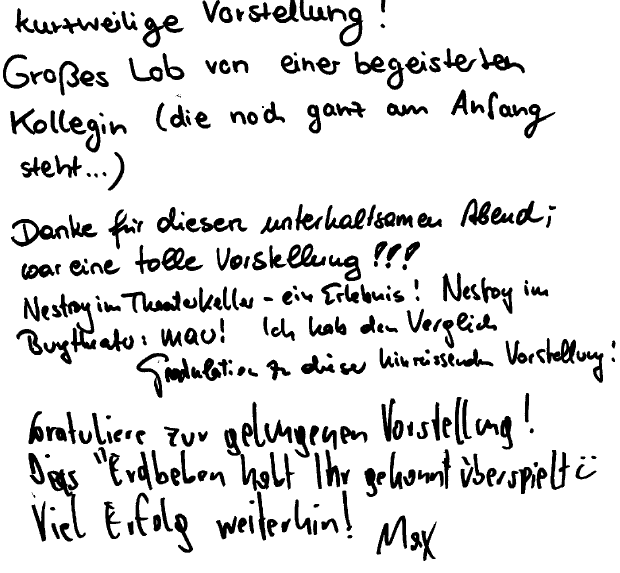 kurzweilige Vorstellung!
Großes Lob von einer begeisterten
Kollegin (die noch ganz am Anfang
steht...)
Danke für diesen unterhaltsamen Abend;
war eine tolle Vorstellung!!!
Nestroy im Theaterkeller - ein Erlebnis! Nestroy im
Burgtheater: mau! Ich hab den Vergleich
Gradulation zu dieser hinreissenden Vorstellung!
Gratuliere zur gelungenen Vorstellung!
Das "Erdbeben habt Ihr gekonnt überspielt ü
Viel Erfolg weiterhin! Max